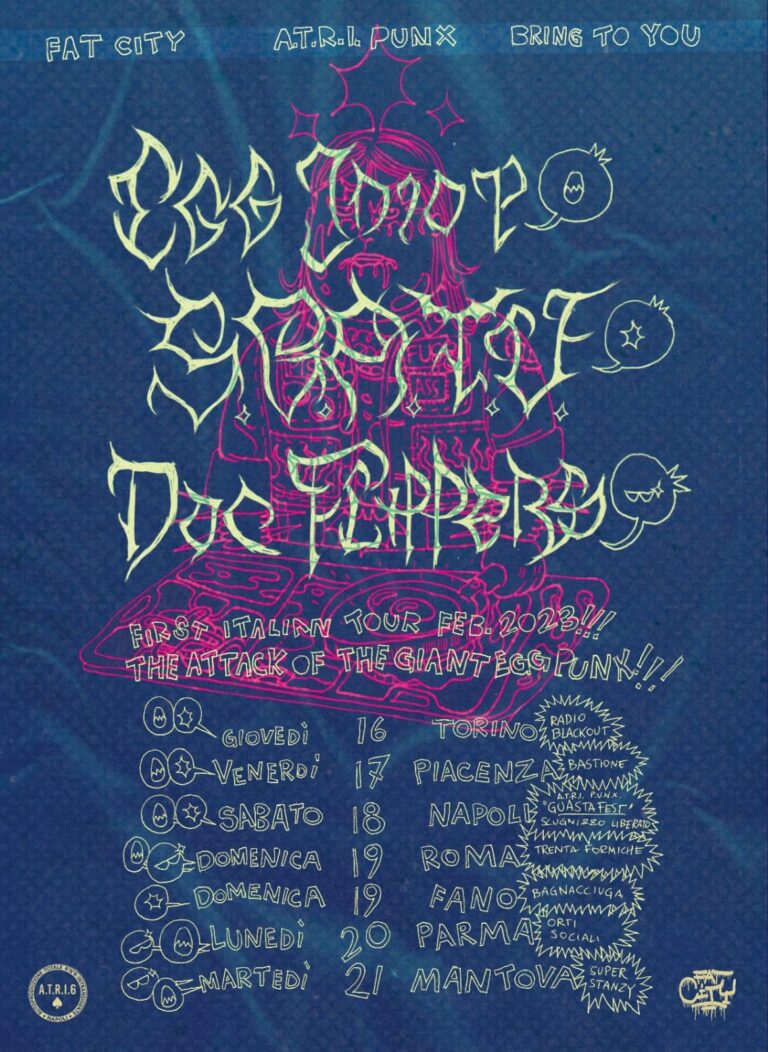 FAT CITY A.T.R.I. PUNX BRING TO YOU
EGG IDIOT
SRATÜ
DOC FLIPPERS
FIRST ITALIAN TOUR FEB. 2023!!!
THE ATTACK OF THE GIANT EGG PUNX!!!
GIOVEDÌ 16 TORINO RADIO BLACKOUT
VENERDÌ 17 PIACENZA BASTIONE
SABATO 18 NAPOLI A.T.R.I. PUNX "GUASTAFEST" SCUGNIZZO LIBERATO
DOMENICA 19 ROMA TRENTA FORMICHE
DOMENICA 19 FANO BAGNACCIUGA
LUNEDÌ 20 PARMA ORTI SOCIALI
MARTEDÌ 21 MANTOVA SUPER STANZY
A.T.R.I.6
NAPOLI
FAT CITY
ASS